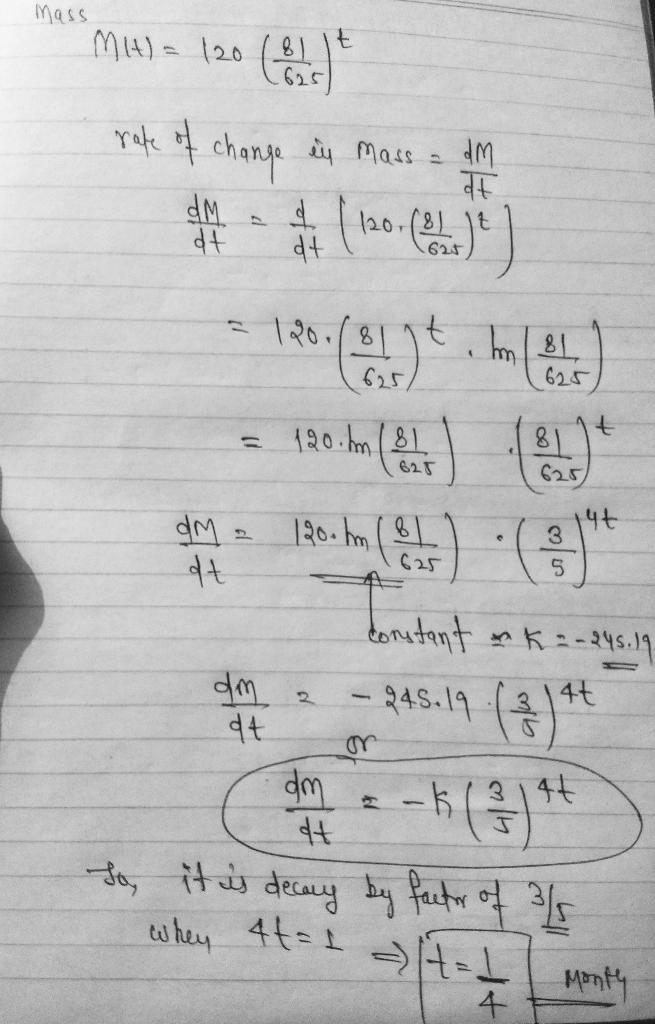 Mass
M(t) = 120 (81/625)^t
rate of change in Mass = dM/dt
dM/dt = d/dt (120.(81/625)^t)
= 120.(81/625)^t . ln(81/625)
= 120.ln(81/625) .(81/625)^t
dM/dt = 120.ln(81/625) . (3/5)^4t
constant K = -245.19
dm/dt = -245.19 .(3/5)^4t
or
dm/dt = -K(3/5)^4t
So, it is decay by factor of 3/5
when 4t=1 => t=1/4 Month